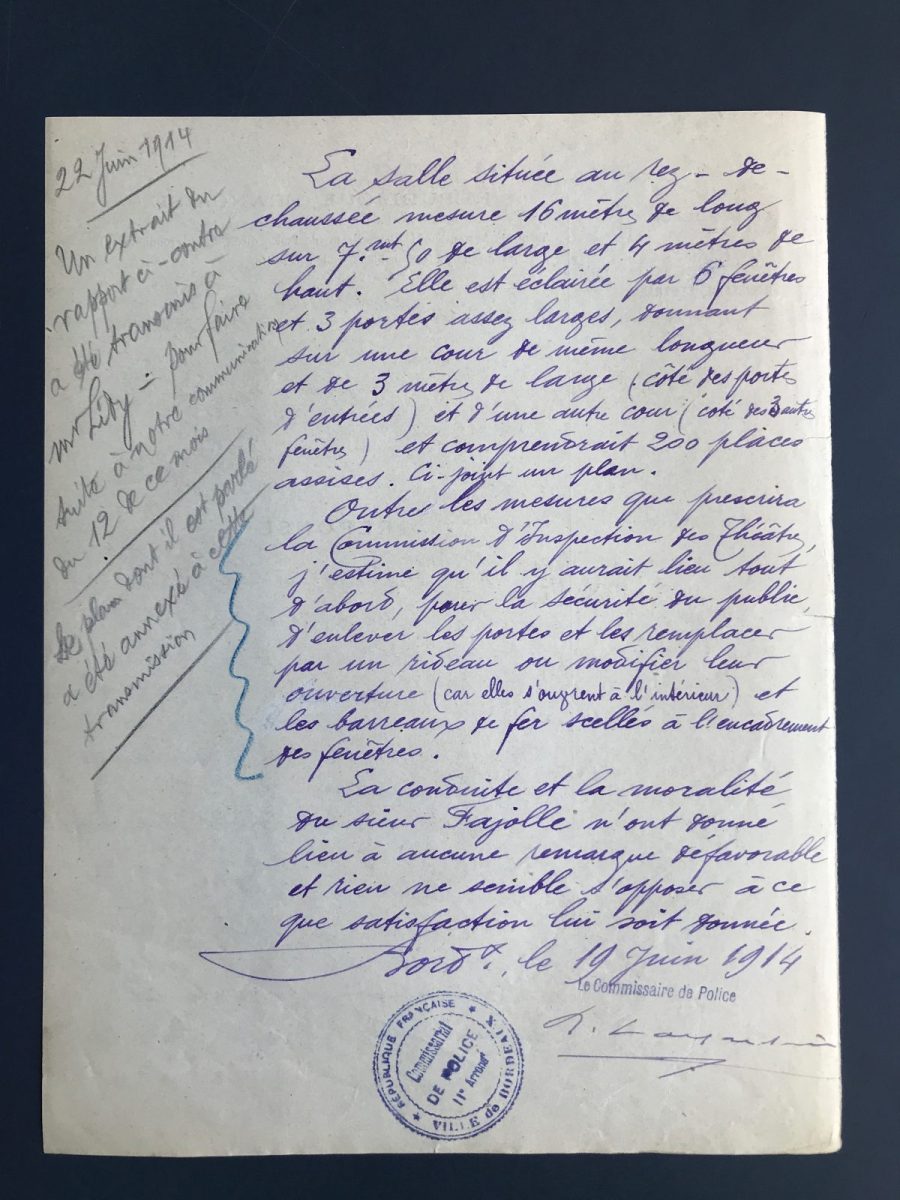 22 Juin 1914
Un extrait du
rapport ci-contre
a été transmis à
mr Lévy - pour faire
suite à notre communication
du 12 de ce mois
Le plan dont il est parlé
a été annexé à cette
transmission
La salle située au rez-de-
chaussée mesure 16 mètres de long
sur 7.mt 50 de large et 4 mètres de
haut. Elle est éclairée par 6 fenêtres
et 3 portes assez larges, donnant
sur une cour de même longueur
et de 3 mètres de large (côté des portes
d'entrées) et d'une autre cour (côté des 3 autres
fenêtre) et comprendrait 200 places
assises. Ci-joint un plan.
Outres les mesures que prescrira
la Commission d'Inspection des Théâtres,
j'estime qu'il y aurait lieu tout
d'abord, pour la sécurité du public,
d'enlever les portes et les remplacer
par un rideau ou modifier leur
ouverture (car elles s'ouvrent à l'intérieur) et
les barreaux de fer scellés à l'encadrement
des fenêtres.
La conduite et la moralité
du sieur Fajolle n'ont donné
lieu à aucune remarque défavorable
et rien ne semble s'opposer à ce
que satisfaction lui soit donnée.
Bordx, le 19 Juin 1914
Le Commissaire de Police
RÉPUBLIQUE FRANÇAISE
Commissariat
DE POLICE
11e Arrondt
VILLE de BORDEAUX